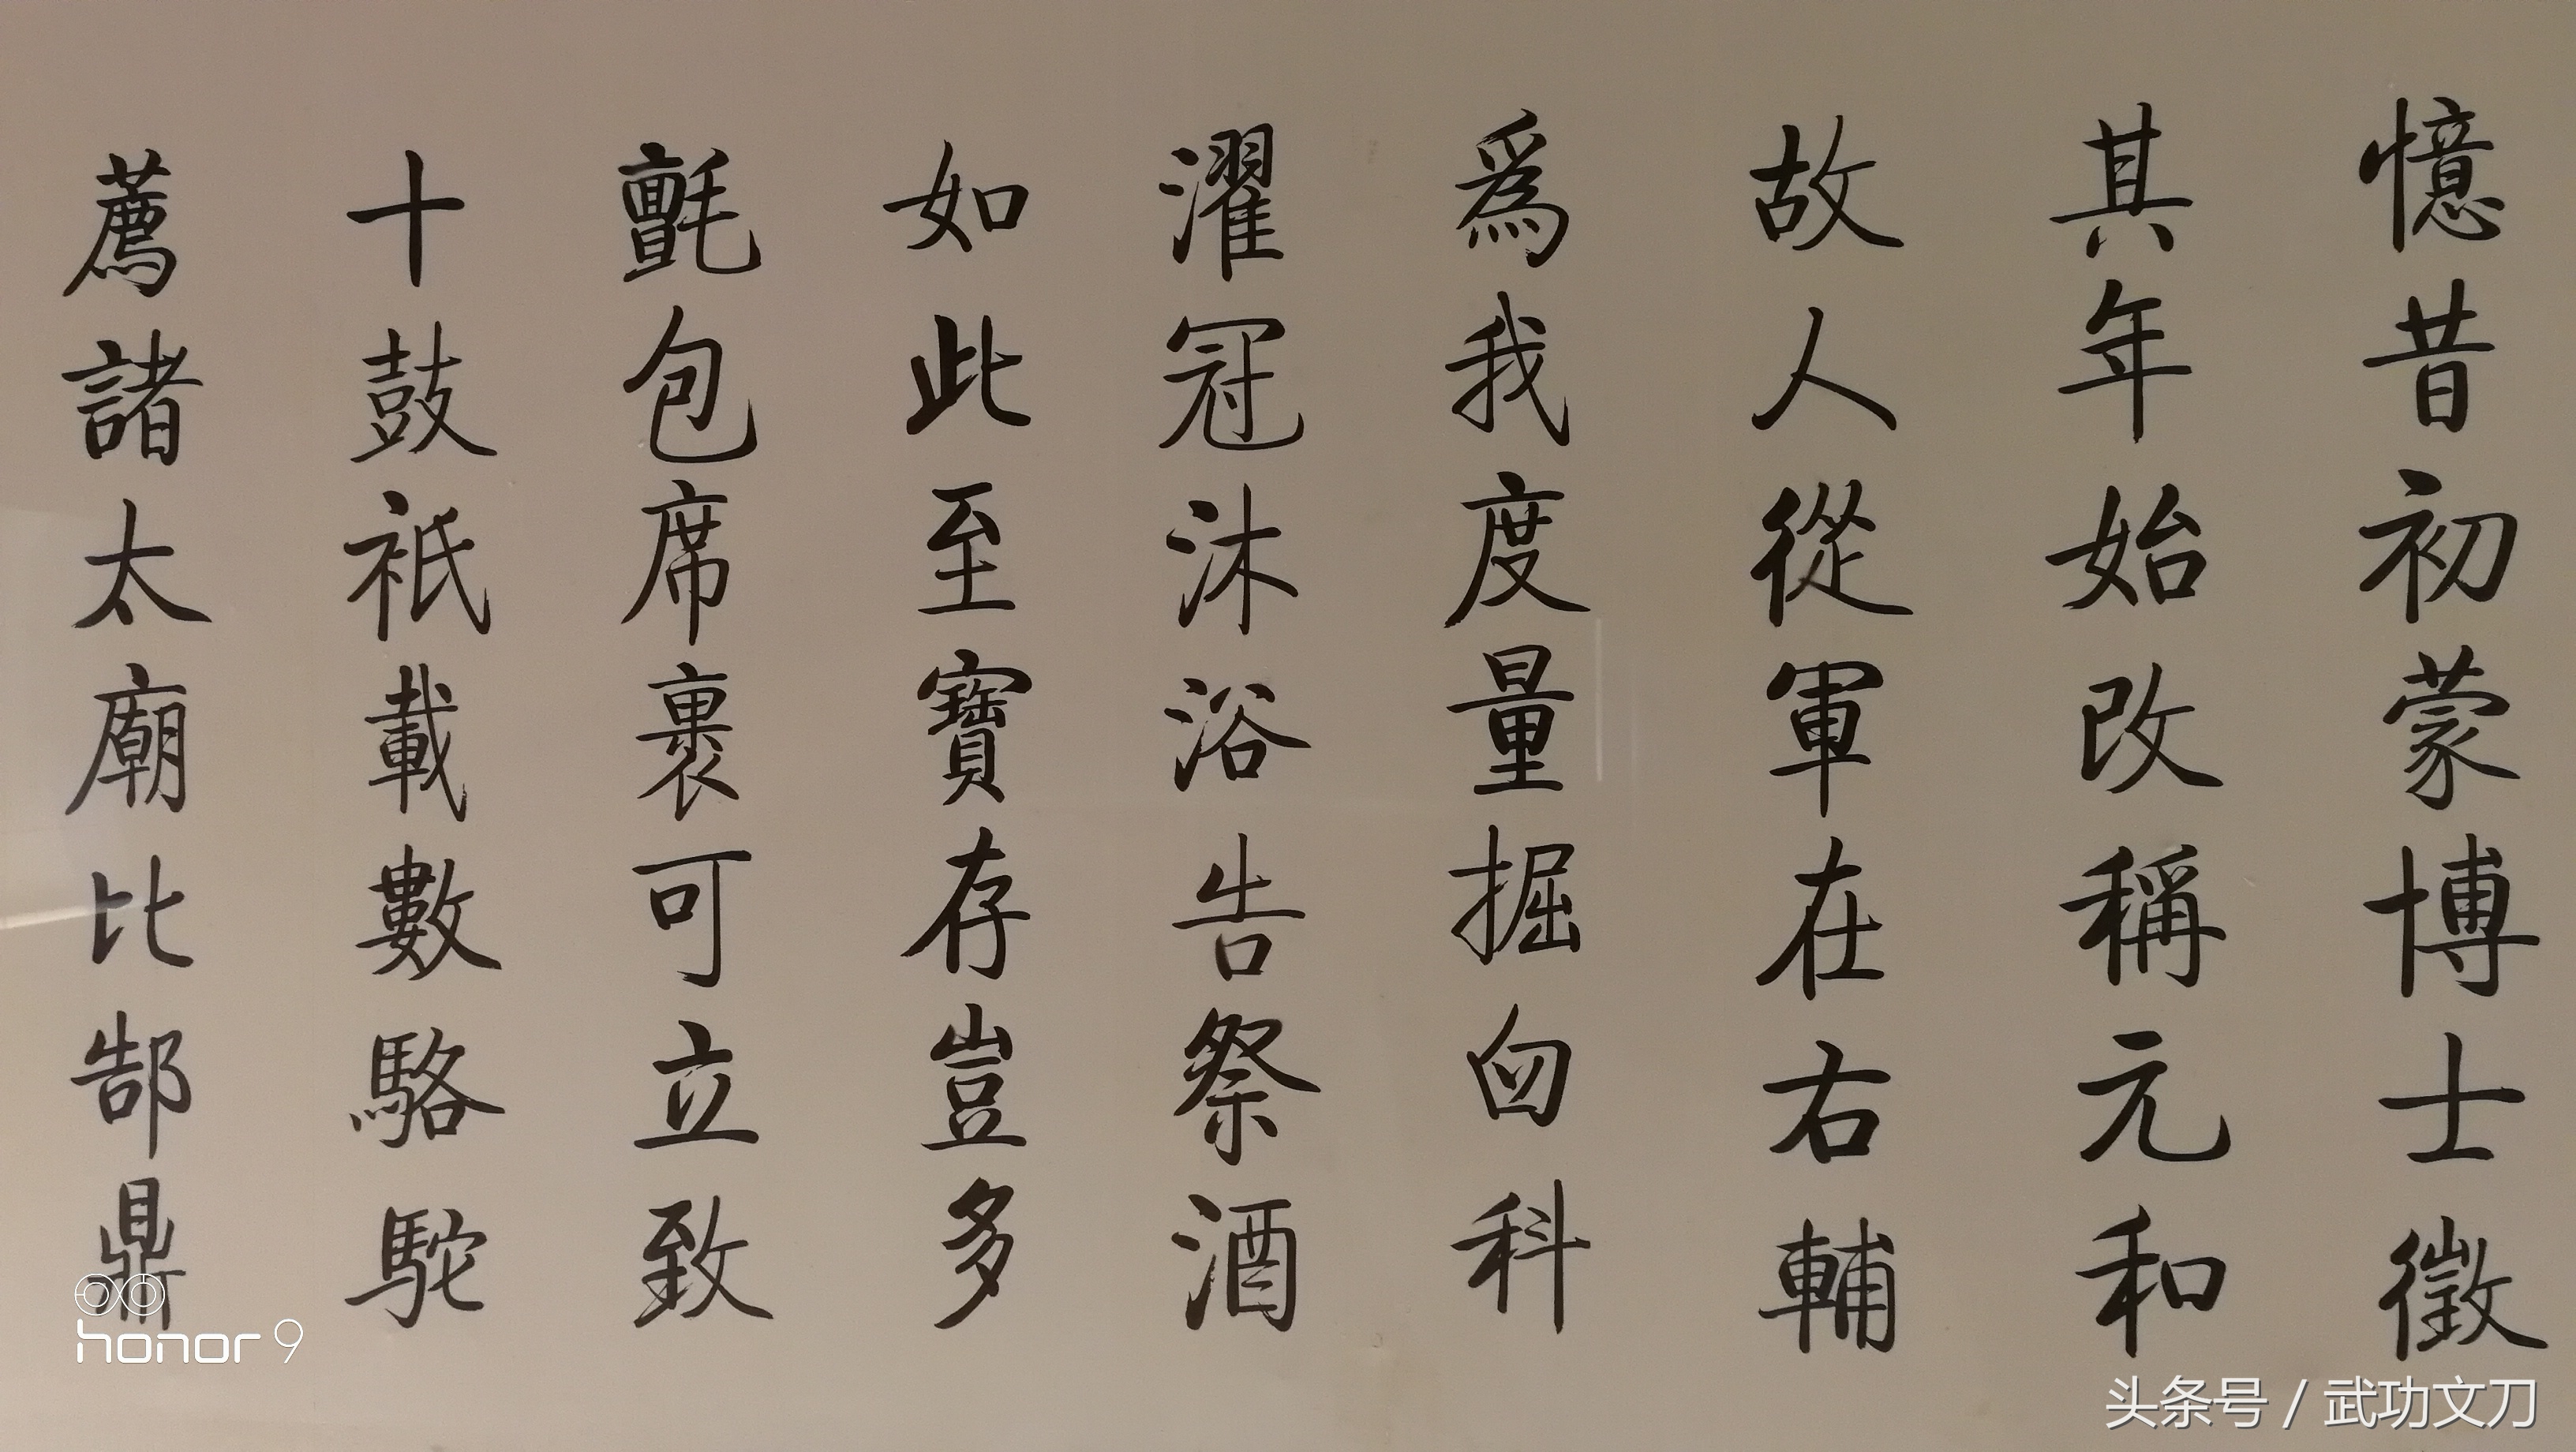 憶昔初蒙博士徵
其年始改稱元和
故人從軍在右輔
爲我度量掘臼科
濯冠沐浴告祭酒
如此至寶存豈多
氈包席裹可立致
十鼓祇載數駱駝
薦諸太廟比郜鼎
honor 9
头条号 / 武功文刀